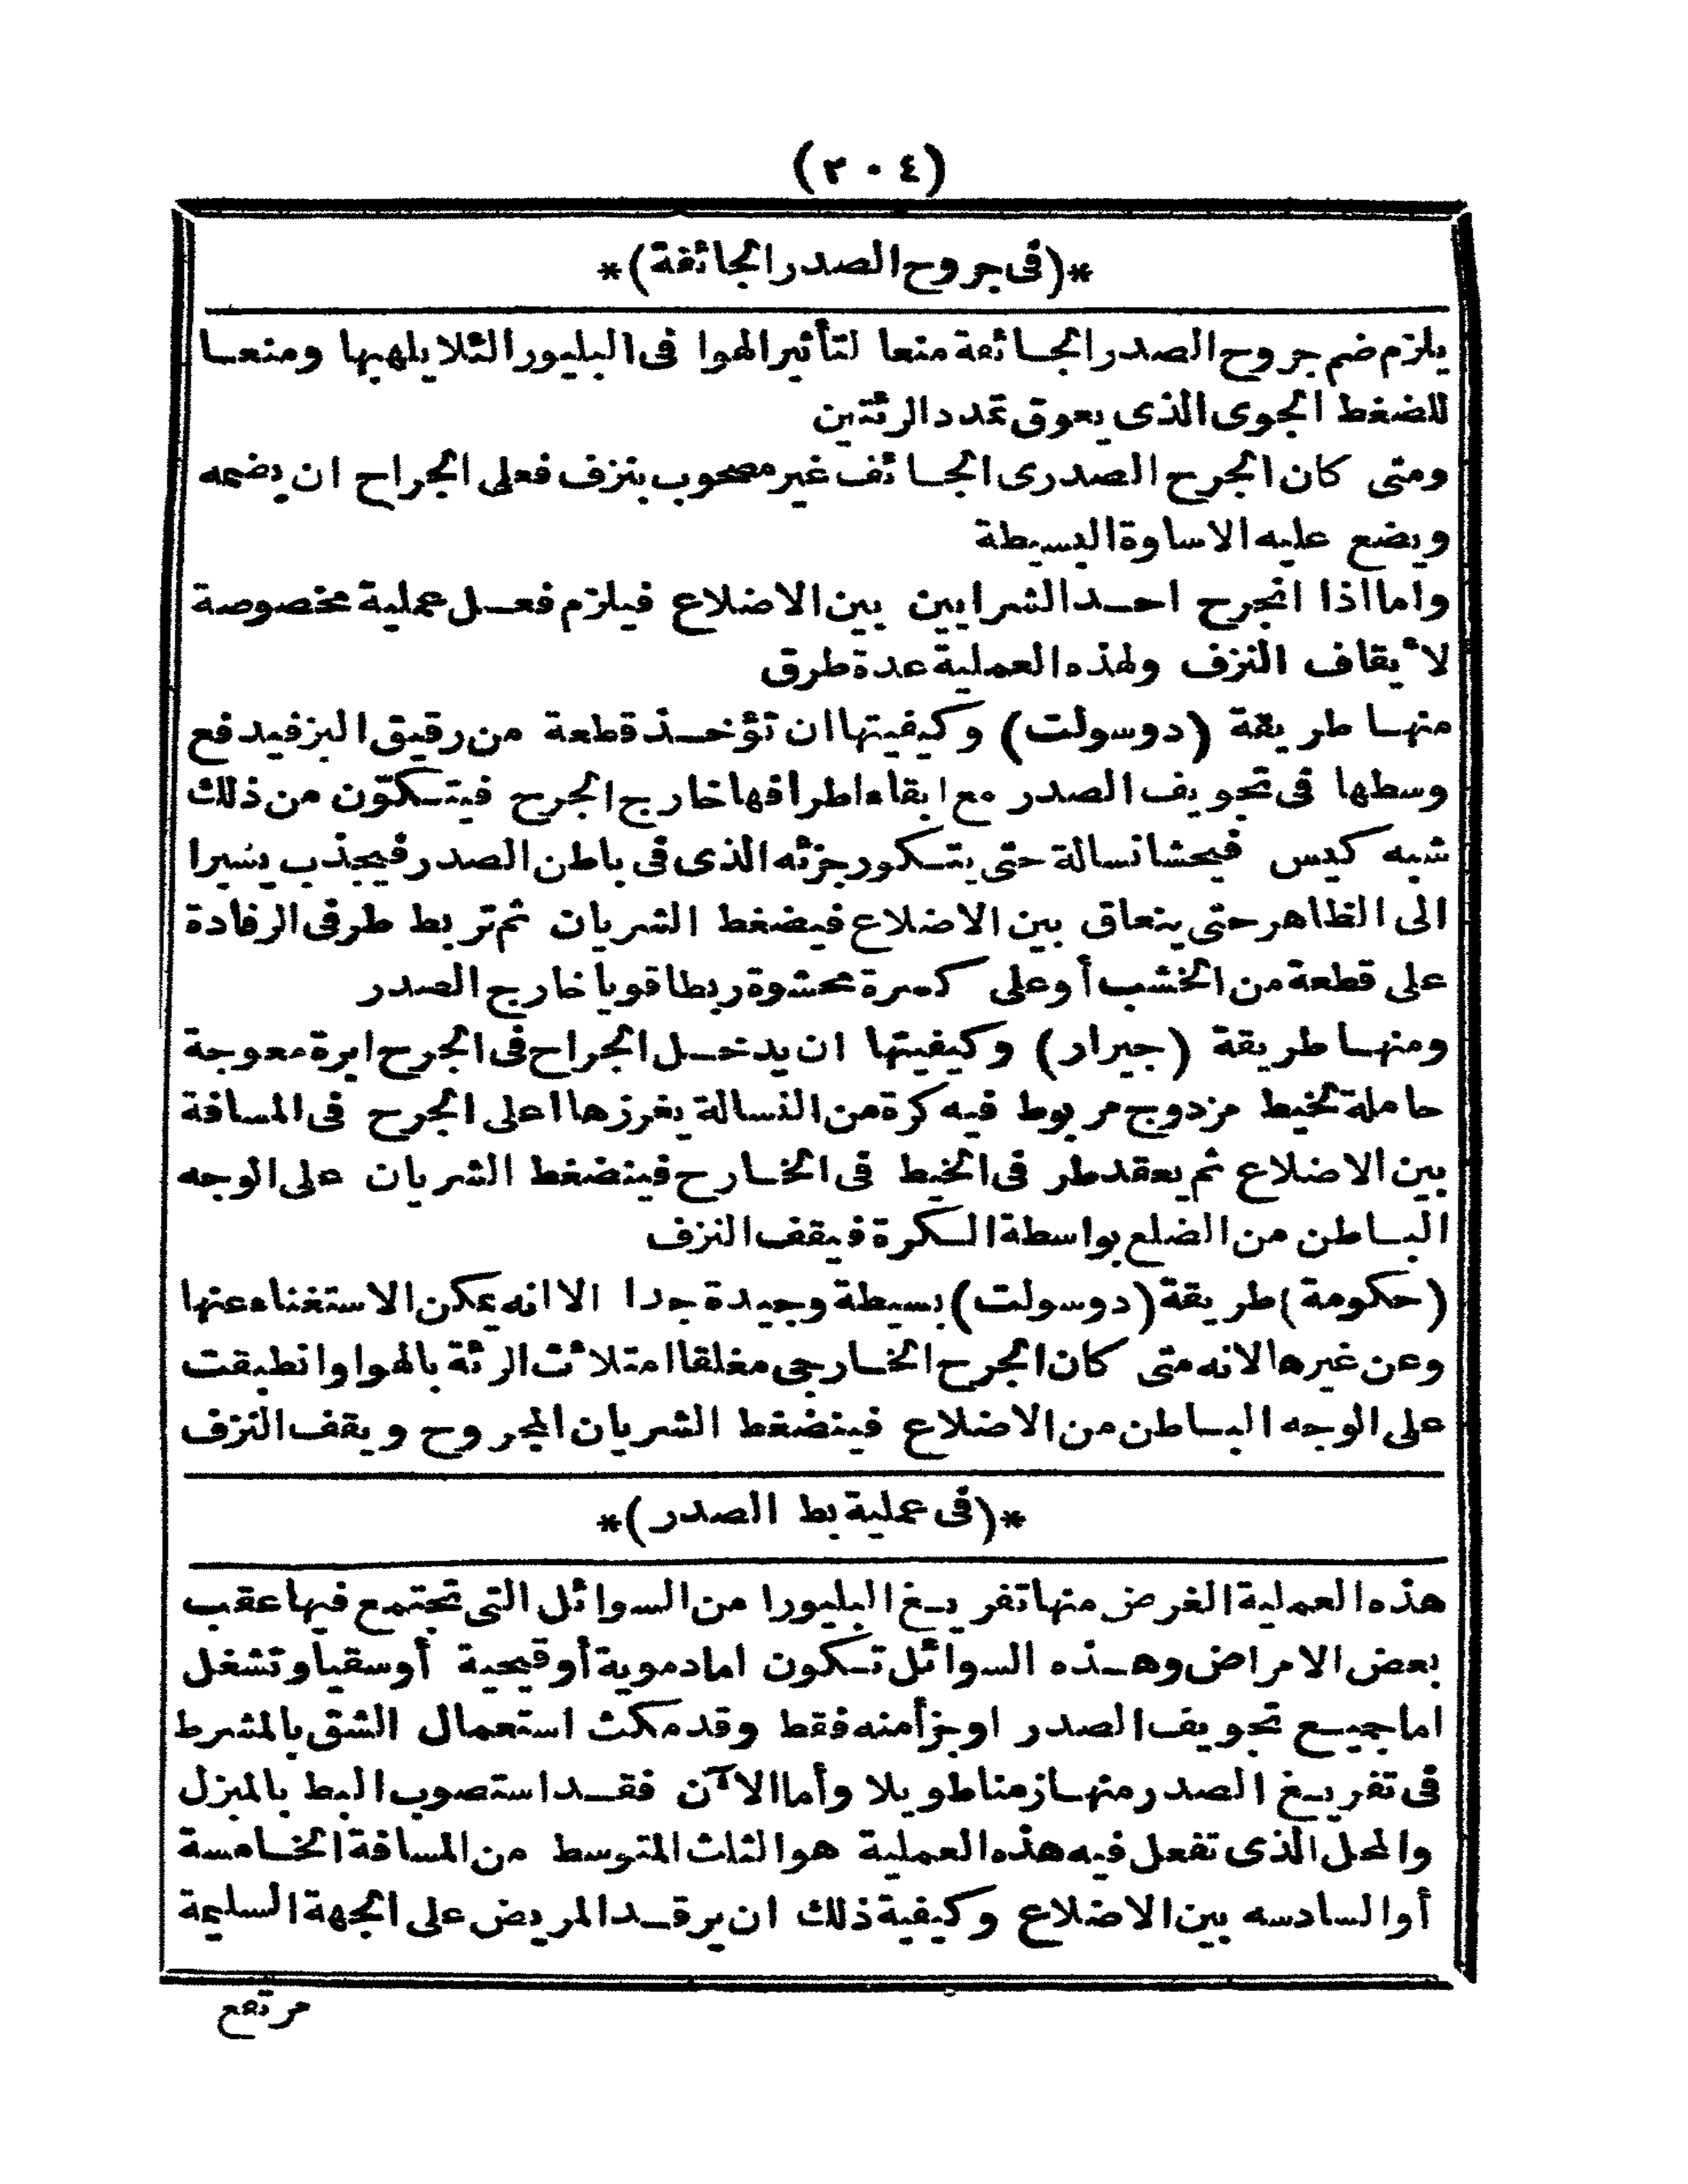 (٢٠٤)
*(فى جروح الصدر الجائفة)*
يلزم ضم جروح الصدر الجائفة منعا لتأثير الهوا فى البليورا لئلا يلهبها ومنعا
للضغط الجوى الذى يعوق تمدد الرئتين
ومتى كان الجرح الصدرى الجائف غير مصحوب بنزف فعلى الجراح ان يضمه
ويضع عليه الاساوة البسيطة
واما اذا انجرح احد الشرايين بين الاضلاع فيلزم فعل عملية مخصوصة
لأيقاف النزف ولهذه العملية عدة طرق
منها طريقة (دوسولت) وكيفيتها ان تؤخذ قطعة من رقيق البز فيدفع
وسطها فى تجويف الصدر مع ابقاء اطرافها خارج الجرح فيتكوّن من ذلك
شبه كيس فيحشا نسالة حتى يتكور جزئه الذى فى باطن الصدر فيجذب يسيرا
الى الظاهر حتى ينعاق بين الاضلاع فيضغط الشريان ثم تربط طرفى الرفادة
على قطعة من الخشب أو على كسرة محشوة ربطا قويا خارج الصدر
ومنها طريقة (جيرار) وكيفيتها ان يدخل الجراح فى الجرح ابرة معوجة
حاملة لخيط مزدوج مربوط فيه كرة من النسالة يغرزها اعلى الجرح فى المسافة
بين الاضلاع ثم يعقد طرفى الخيط فى الخارح فينضغط الشريان على الوجه
الباطن من الضلع بواسطة الكرة فيقف النزف
(حكومة) طريقة (دوسولت) بسيطة وجيدة جدا الا انه يمكن الاستغناء عنها
وعن غيرها لانه متى كان الجرح الخارجى مغلقا امتلأت الرئة بالهوا وانطبقت
على الوجه الباطن من الاضلاع فينضغط الشريان المجروح ويقف النزف
*(فى عملية بط الصدر)*
هذه العملية الغرض منها تفريغ البليورا من السوائل التى تجتمع فيها عقب
بعض الامراض وهذه السوائل تكون اما دموية أو قيحية أو سقيا وتشغل
اما جميع تجويف الصدر او جزأ منه فقط وقد مكث استعمال الشق بالمشرط
فى تفريغ الصدر منها زمنا طويلا وأما الآن فقد استصوب البط بالمبزل
والمحل الذى تفعل فيه هذه العملية هو الثلث المتوسط من المسافة الخامسة
أو السادسه بين الاضلاع وكيفية ذلك ان يرقد المريض على الجهة السليمة
مرتفع